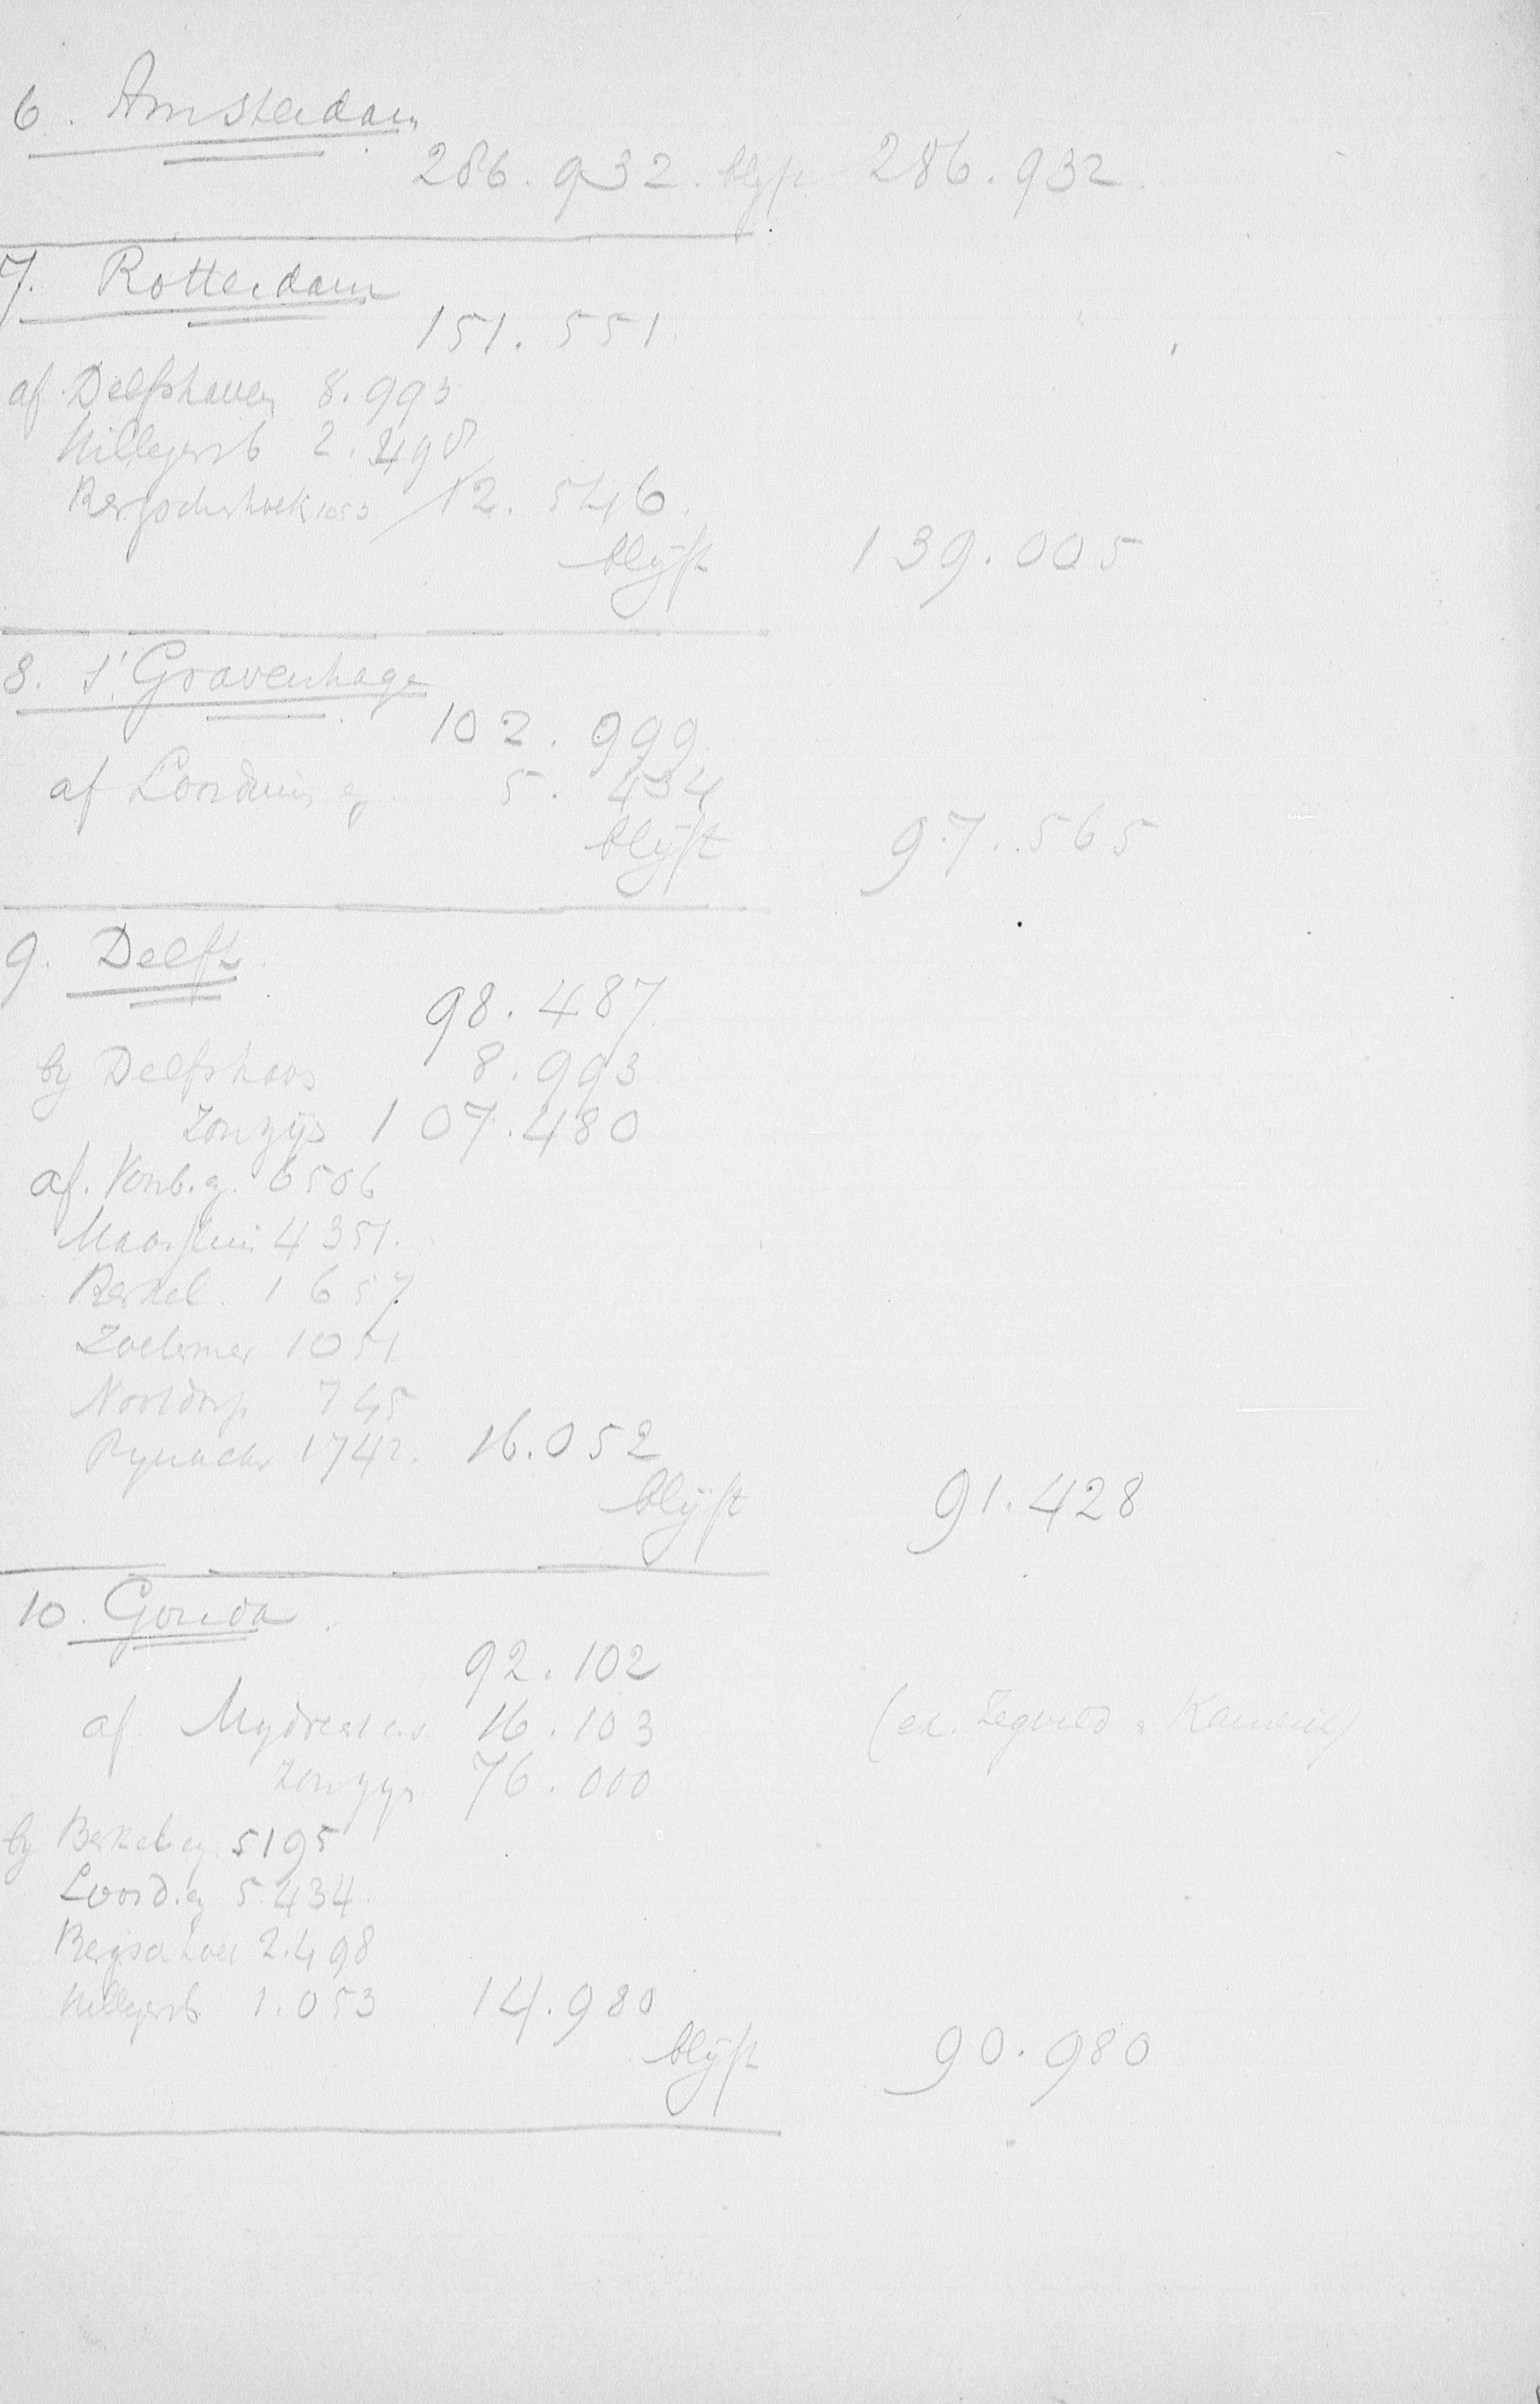 6. Amsterdam
286.932. blyft 286.932.
7. Rotterdam
151.551.
af. Delfshaven 8.993
Hillegersb 2.498
Bergschenhoek 1053 12.546.
blijft 139.005
8. s'Gravenhage
102.999
af Loosduin 5.434
blijft 97.565
9. Delft
98.487
by Delfshav 8.993
zonzijs 107.480
af. 6506
Maassluis 4351.
Berkel 1657
Zoeterme 1051
Nootdorp 745
Pynacker 1742. 16.052
blijft 91.428
10. Gouda.
92.102
af Mydrecht 16.103 (ex. Zegveld & Kamerik)
zonzijs 76.000
by Berkel 5195
Loosd. 5.434.
Bergschhoek 2.498
Hillegersb 1.053 14.980
blijft 90.980